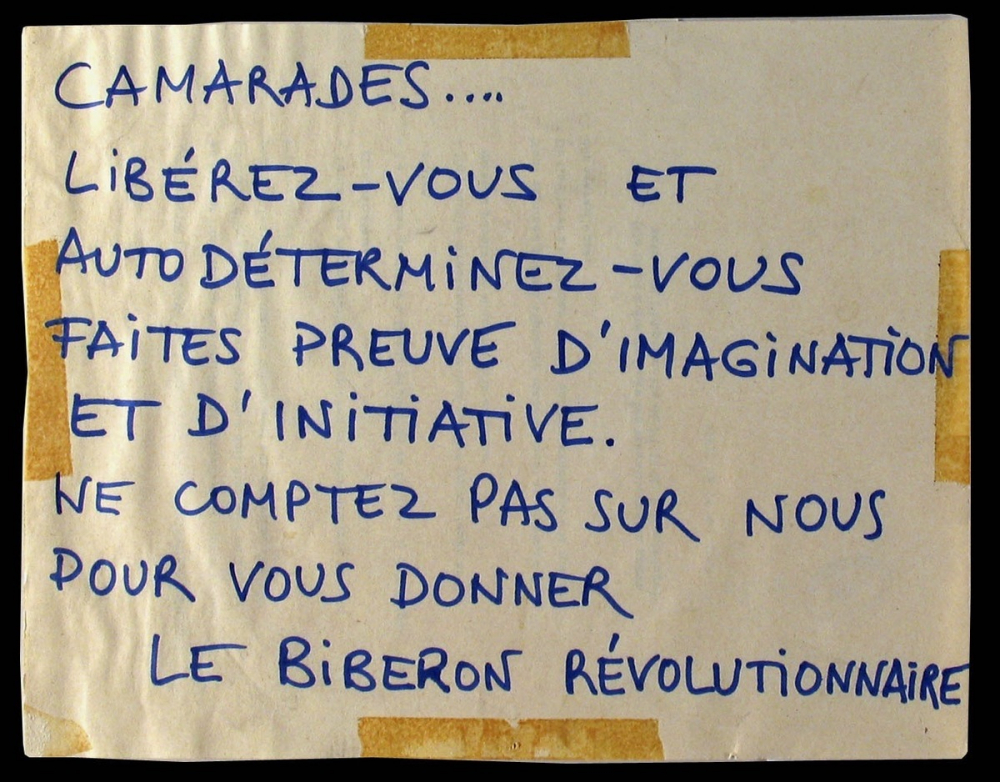 CAMARADES....
LiBÉREZ-VOUS ET
AUTODÉTERMiNEZ-VOUS
FAiTES PREUVE D'IMAGiNATiON
ET D'INiTiATiVE.
NE COMPTEZ PAS SUR NOUS
POUR VOUS DONNER
LE BiBERON RÉVOLUTiONNAiRE